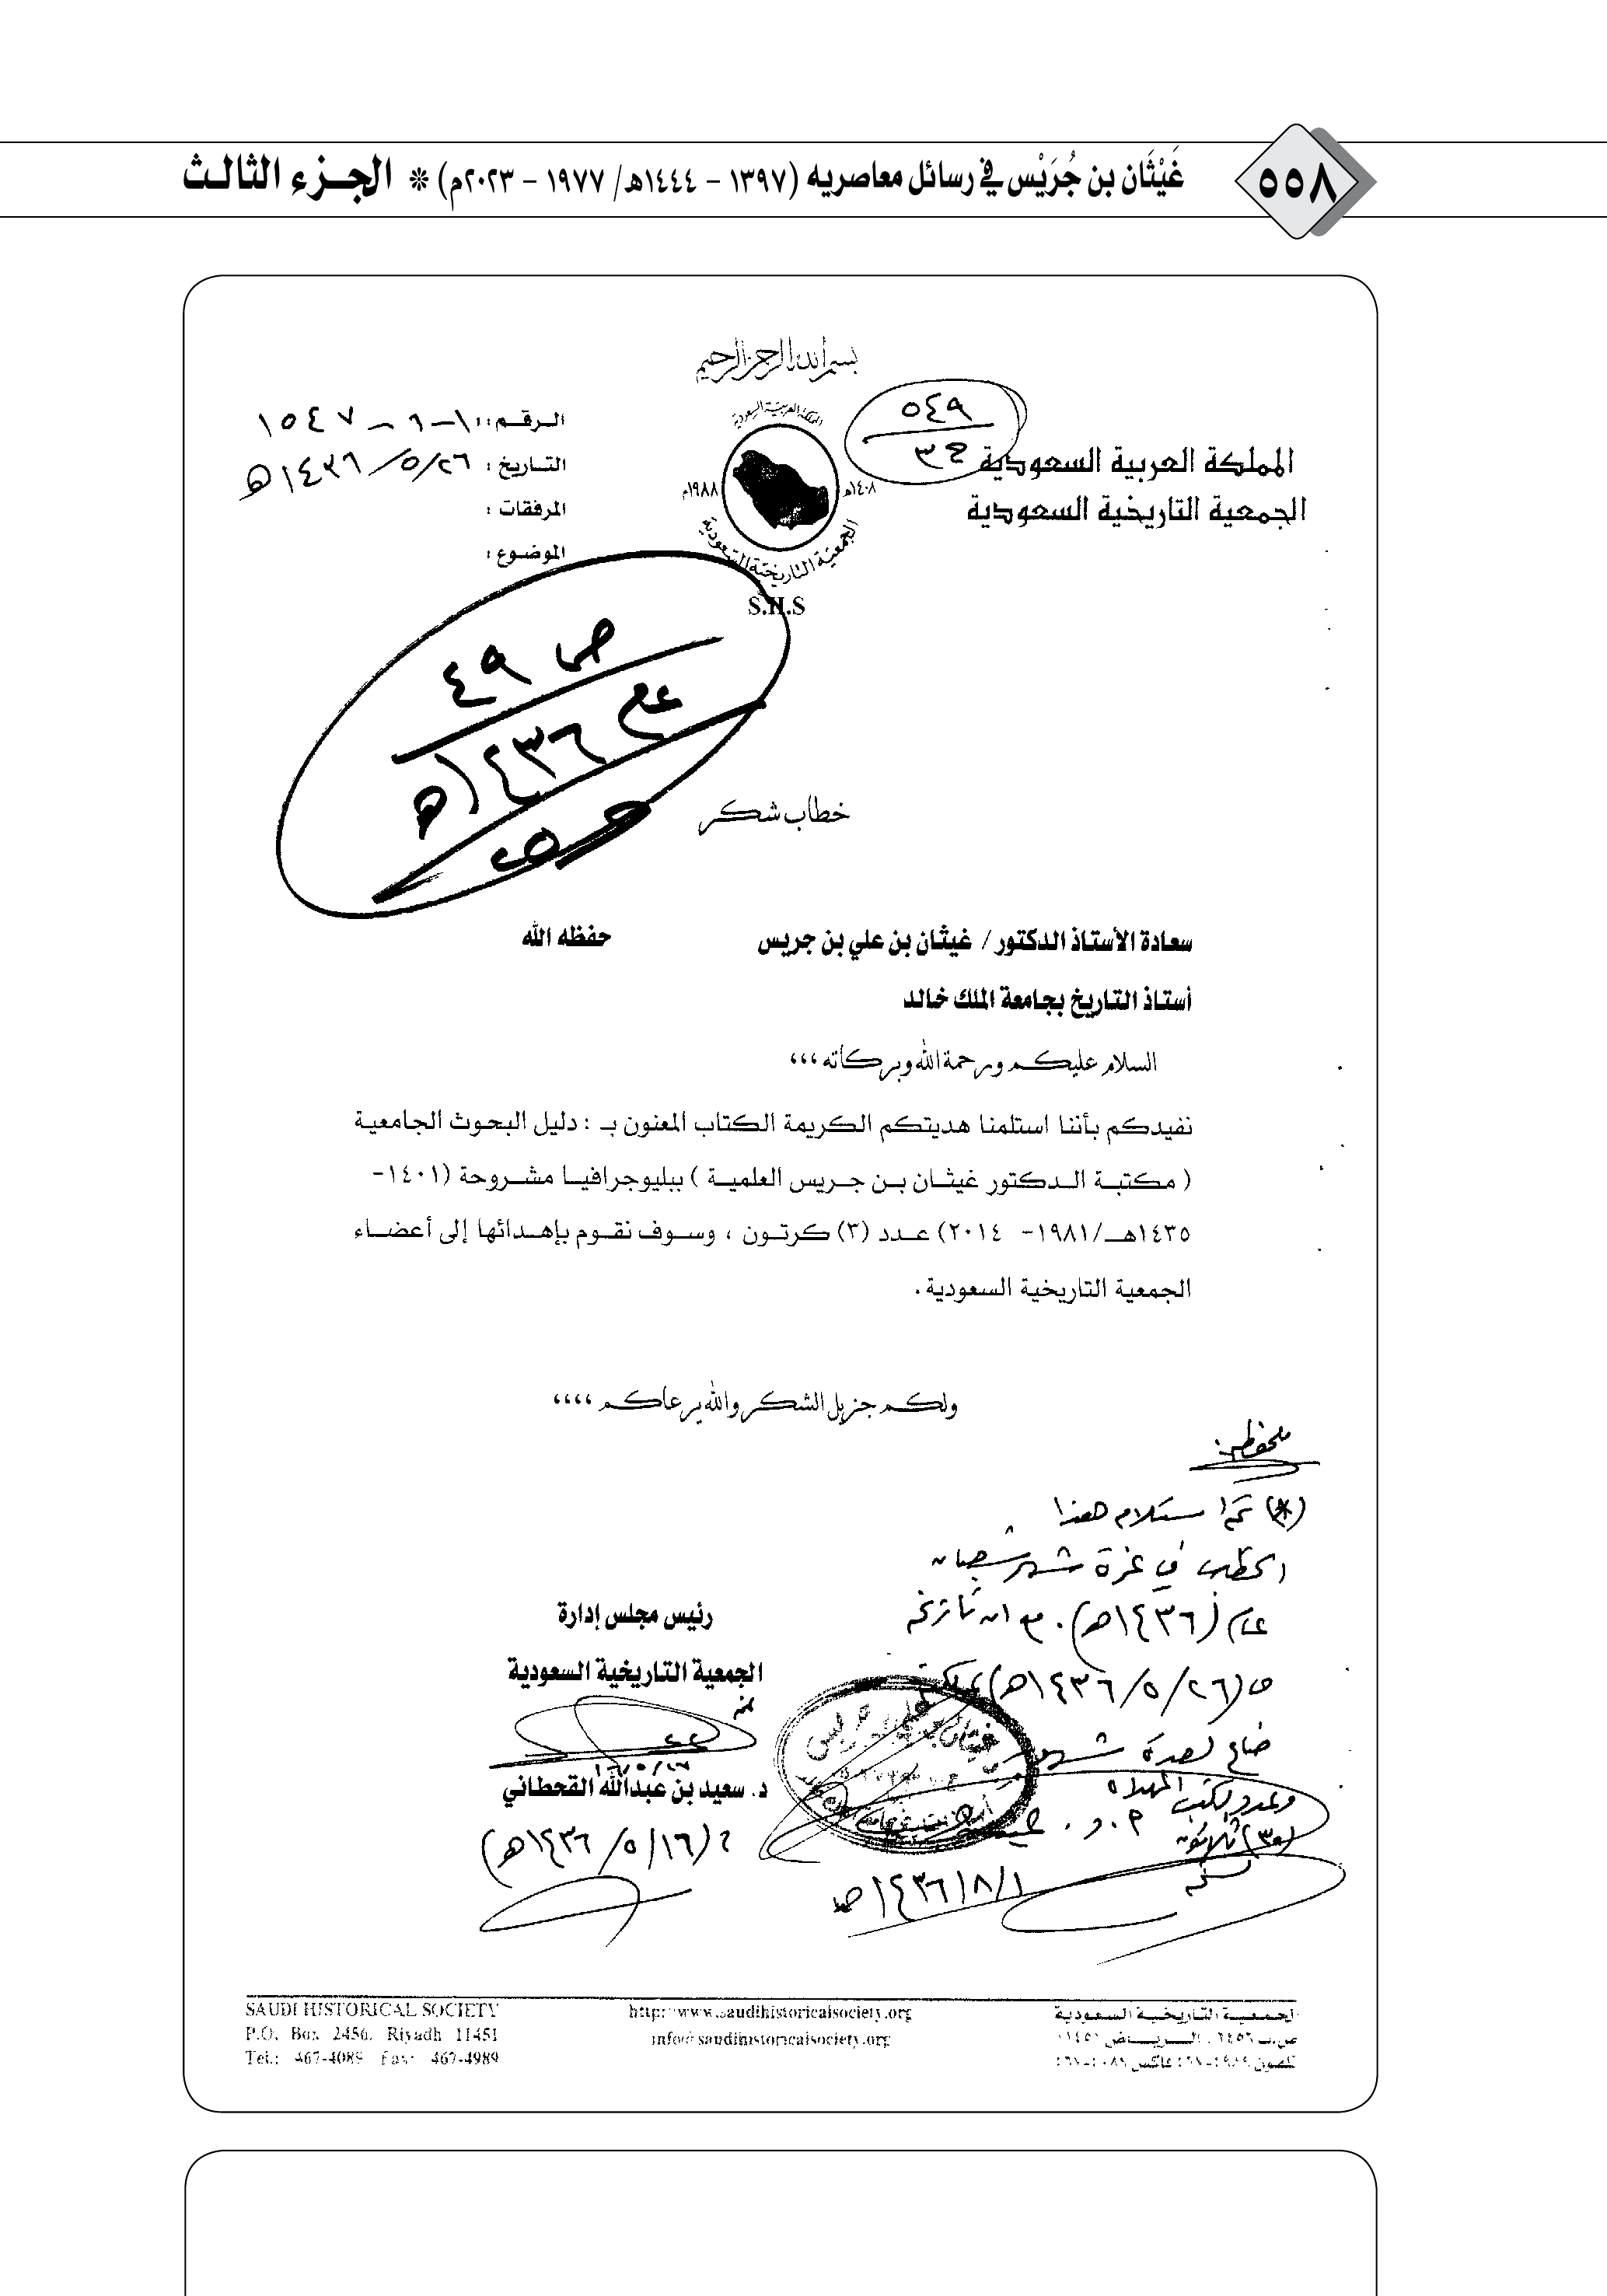 ٥٥٨
غَيْثَان بن جُرَيْس في رسائل معاصريه (١٣٩٧ – ١٤٤٤هـ/ ١٩٧٧ – ٢٠٢٣م) * الجـزء الثالـث
بسم الله الرحمن الرحيم
المملكة العربية السعودية
الجمعية التاريخية السعودية
٥٤٩
المملكة العربية السعودية
١٤٠٨هـ
١٩٨٨م
الجمعية التاريخية السعودية
S.H.S
الـرقـم :
التـاريخ : ٢٦/٥/١٤٣٦هـ
المرفقات :
الموضـوع :
ص ٤٩
عام ١٤٣٦هـ
خطاب شكر
سعادة الأستاذ الدكتور / غيثان بن علي بن جريس
حفظه الله
أستاذ التاريخ بجامعة الملك خالد
السلام عليكم ورحمة الله وبركاته ،،،
نفيدكم بأننا استلمنا هديتكم الكريمة الكتاب المعنون بـ : دليل البحوث الجامعية
( مكتبـة الـدكتور غيثـان بـن جـريس العلميـة ) ببليوجرافيـا مشـروحة (١٤٠١-
١٤٣٥هـ/١٩٨١- ٢٠١٤) عـدد (٣) كرتـون ، وسـوف نقـوم بإهـدائها إلى أعضـاء
الجمعية التاريخية السعودية .
ولكم جزيل الشكر والله يرعاكم ،،،،
رئيس مجلس إدارة
الجمعية التاريخية السعودية
د. سعيد بن عبدالله القحطاني
(١٦/٥/١٤٣٦هـ)
ملحوظة:
(*) تم استلام هذا
الخطاب في غرة شهر شعبان
عام (١٤٣٦هـ). مع ان تاريخه
في (٢٦/٥/١٤٣٦هـ)
ضاع لمدة شهرين
وعدد الكتب المهداه
(٣٠) ثلاثون
نسخه
١/٨/١٤٣٦هـ
SAUDI HISTORICAL SOCIETY
P.O. Box 2456, Riyadh 11451
Tel.: 467-4089 Fax: 467-4989
http://www.saudihistoricalsociety.org
info@saudihistoricalsociety.org
الجـمـعـيـة الـتـاريـخـيـة الـسـعـوديـة
ص.ب ٢٤٥٦ ، الـــريـــاض ١١٤٥١